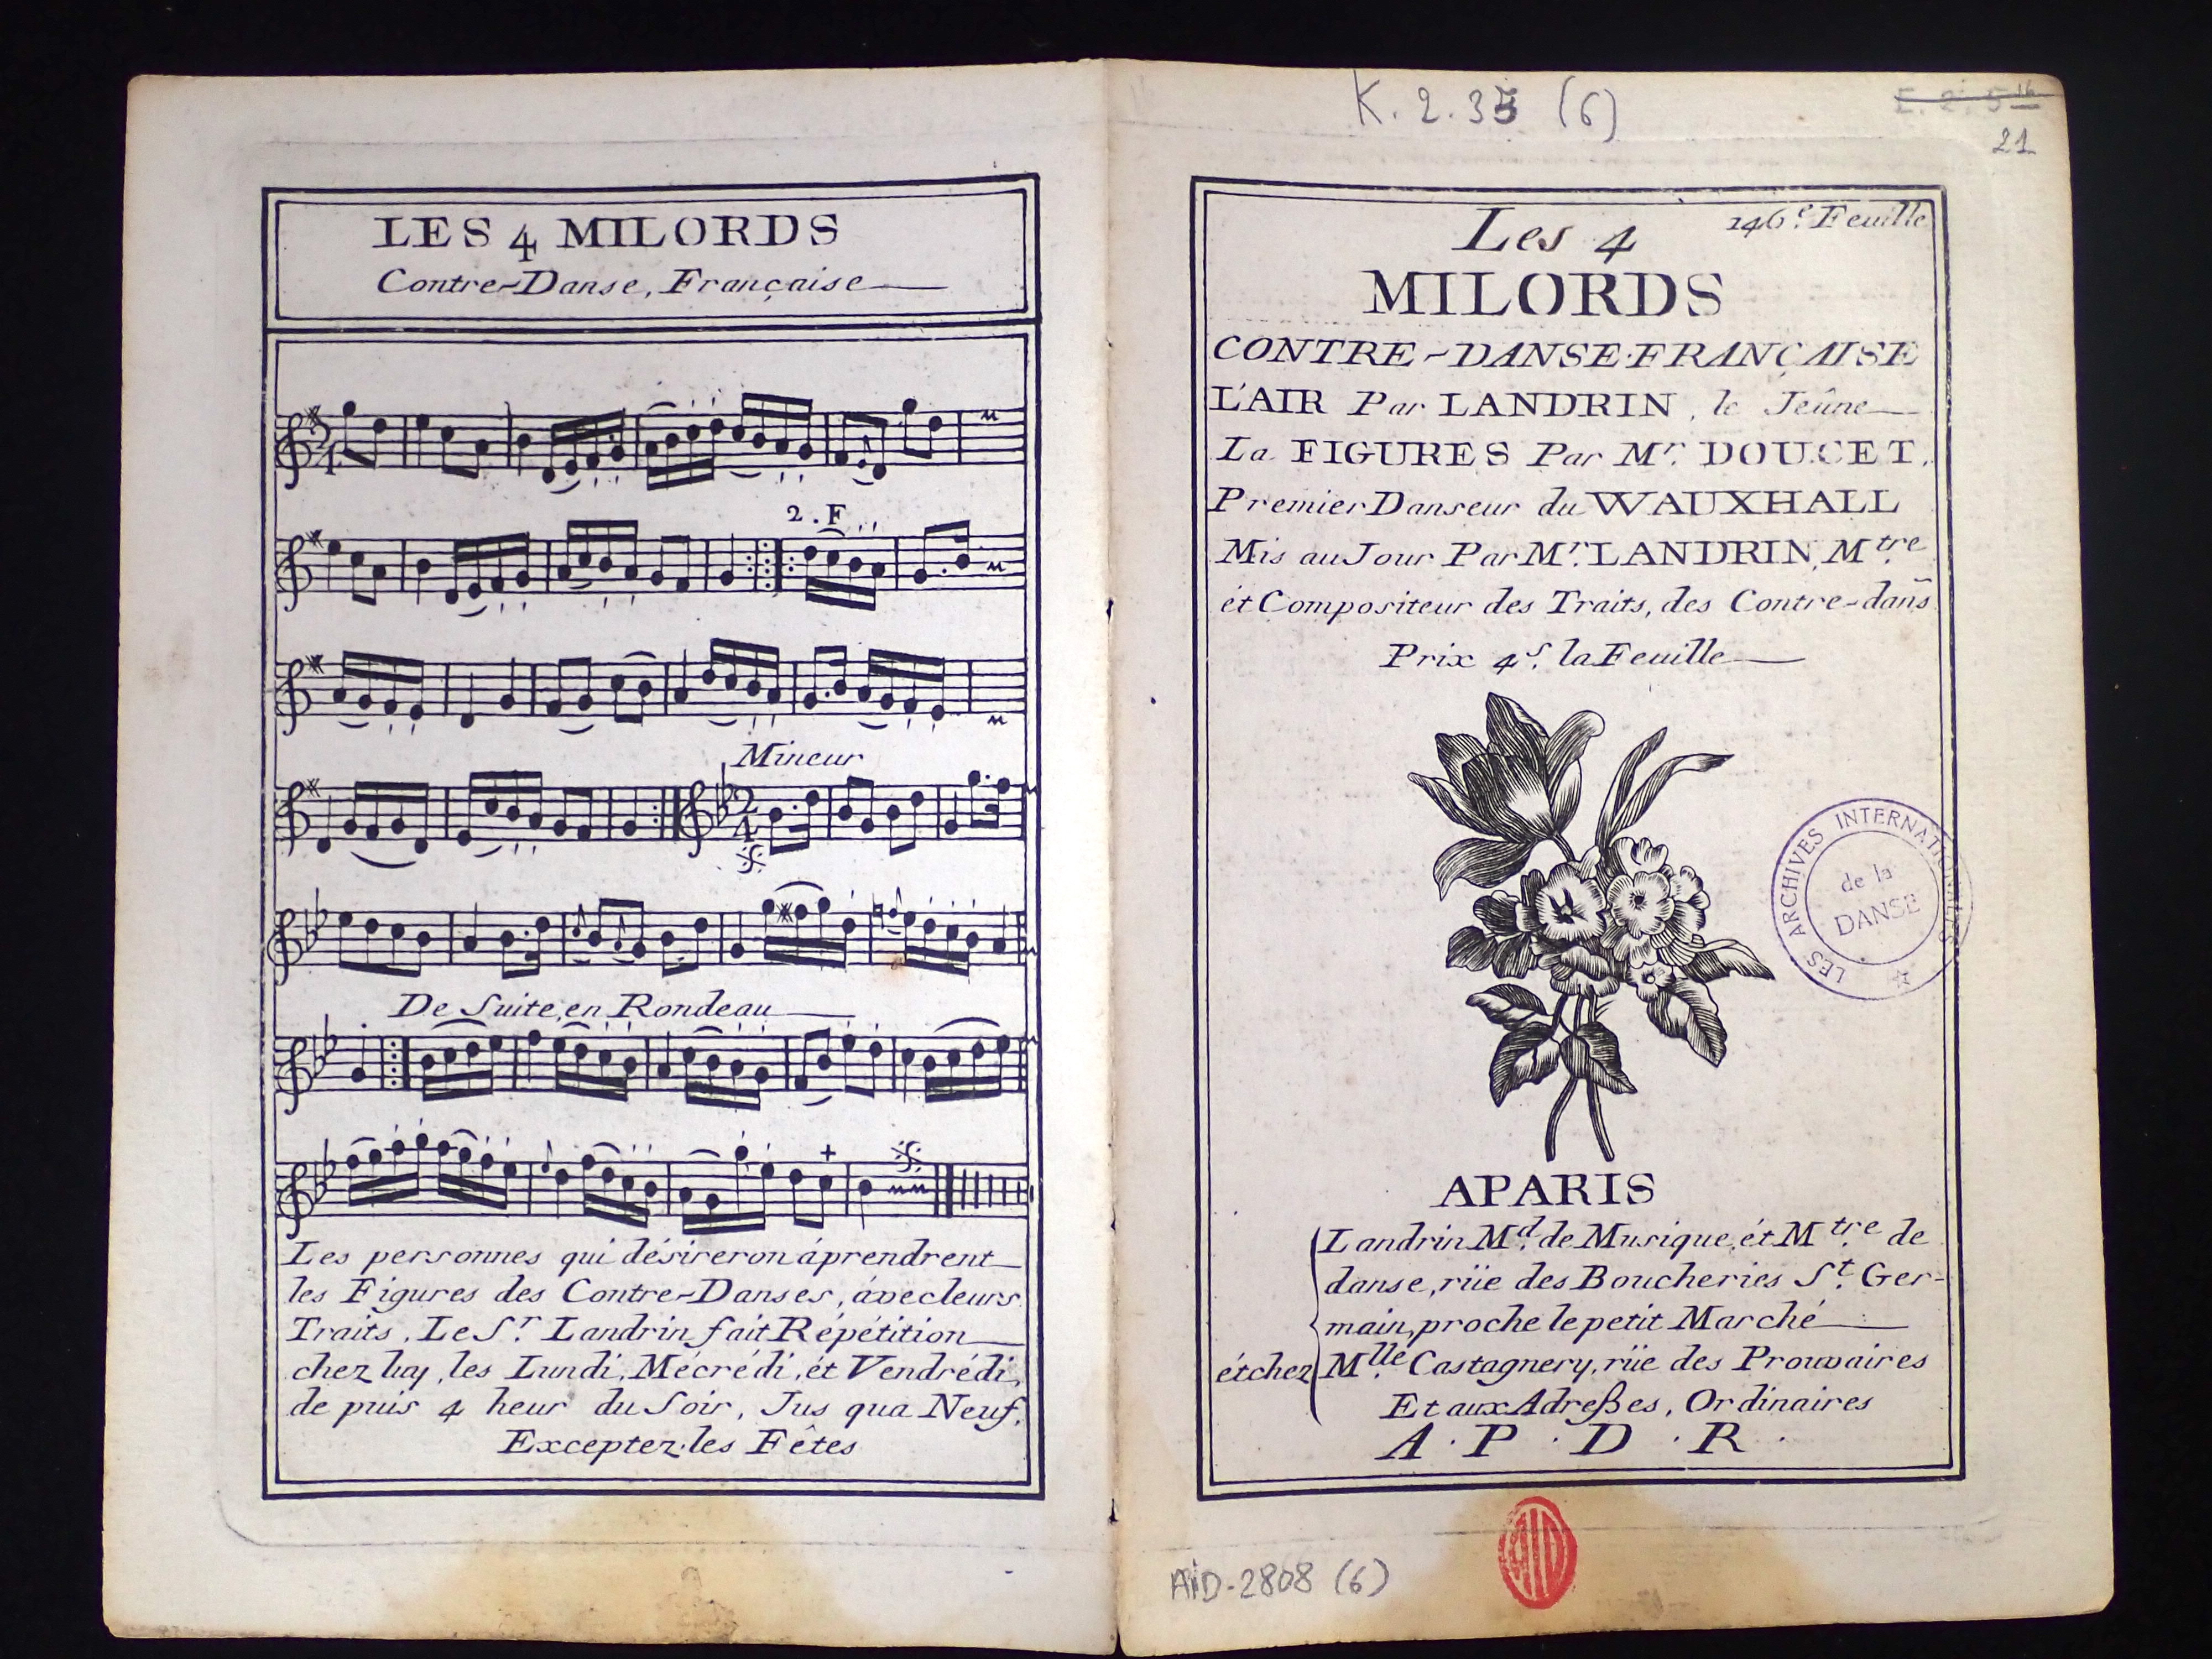 LES 4 MILORDS
Contre-Danse, Française
2 . F
Mineur
De Suite, en Rondeau
Les personnes qui désireron áprendrent
les Figures des Contre-Danses, ávec leurs
Traits, Le Sr. Landrin fait Répétition
chez luy, les Lundi, Mécrédi, ét Vendrédi,
de puis 4 heur du Soir, Jus qua Neuf,
Exceptez les Fêtes
K. 2. 35 (6)
21
146e. Feuille
Les 4
MILORDS
CONTRE-DANSE FRANÇAISE
L'AIR Par LANDRIN, le Jeûne
La FIGURES Par Mr. DOUCET,
Premier Danseur du WAUXHALL
Mis au Jour Par Mr. LANDRIN, Mtre.
ét Compositeur des Traits, des Contre-dañs
Prix 4s. la Feuille
LES ARCHIVES INTERNATIONALES
de la
DANSE
APARIS
Landrin Md. de Musique, ét Mtre. de
danse, rüe des Boucheries St. Ger-
main, proche le petit Marché
ét chez Mlle. Castagnery, rüe des Prouvaires
Et aux Adreßes, Ordinaires
A . P . D . R .
AID-2808 (6)
AID